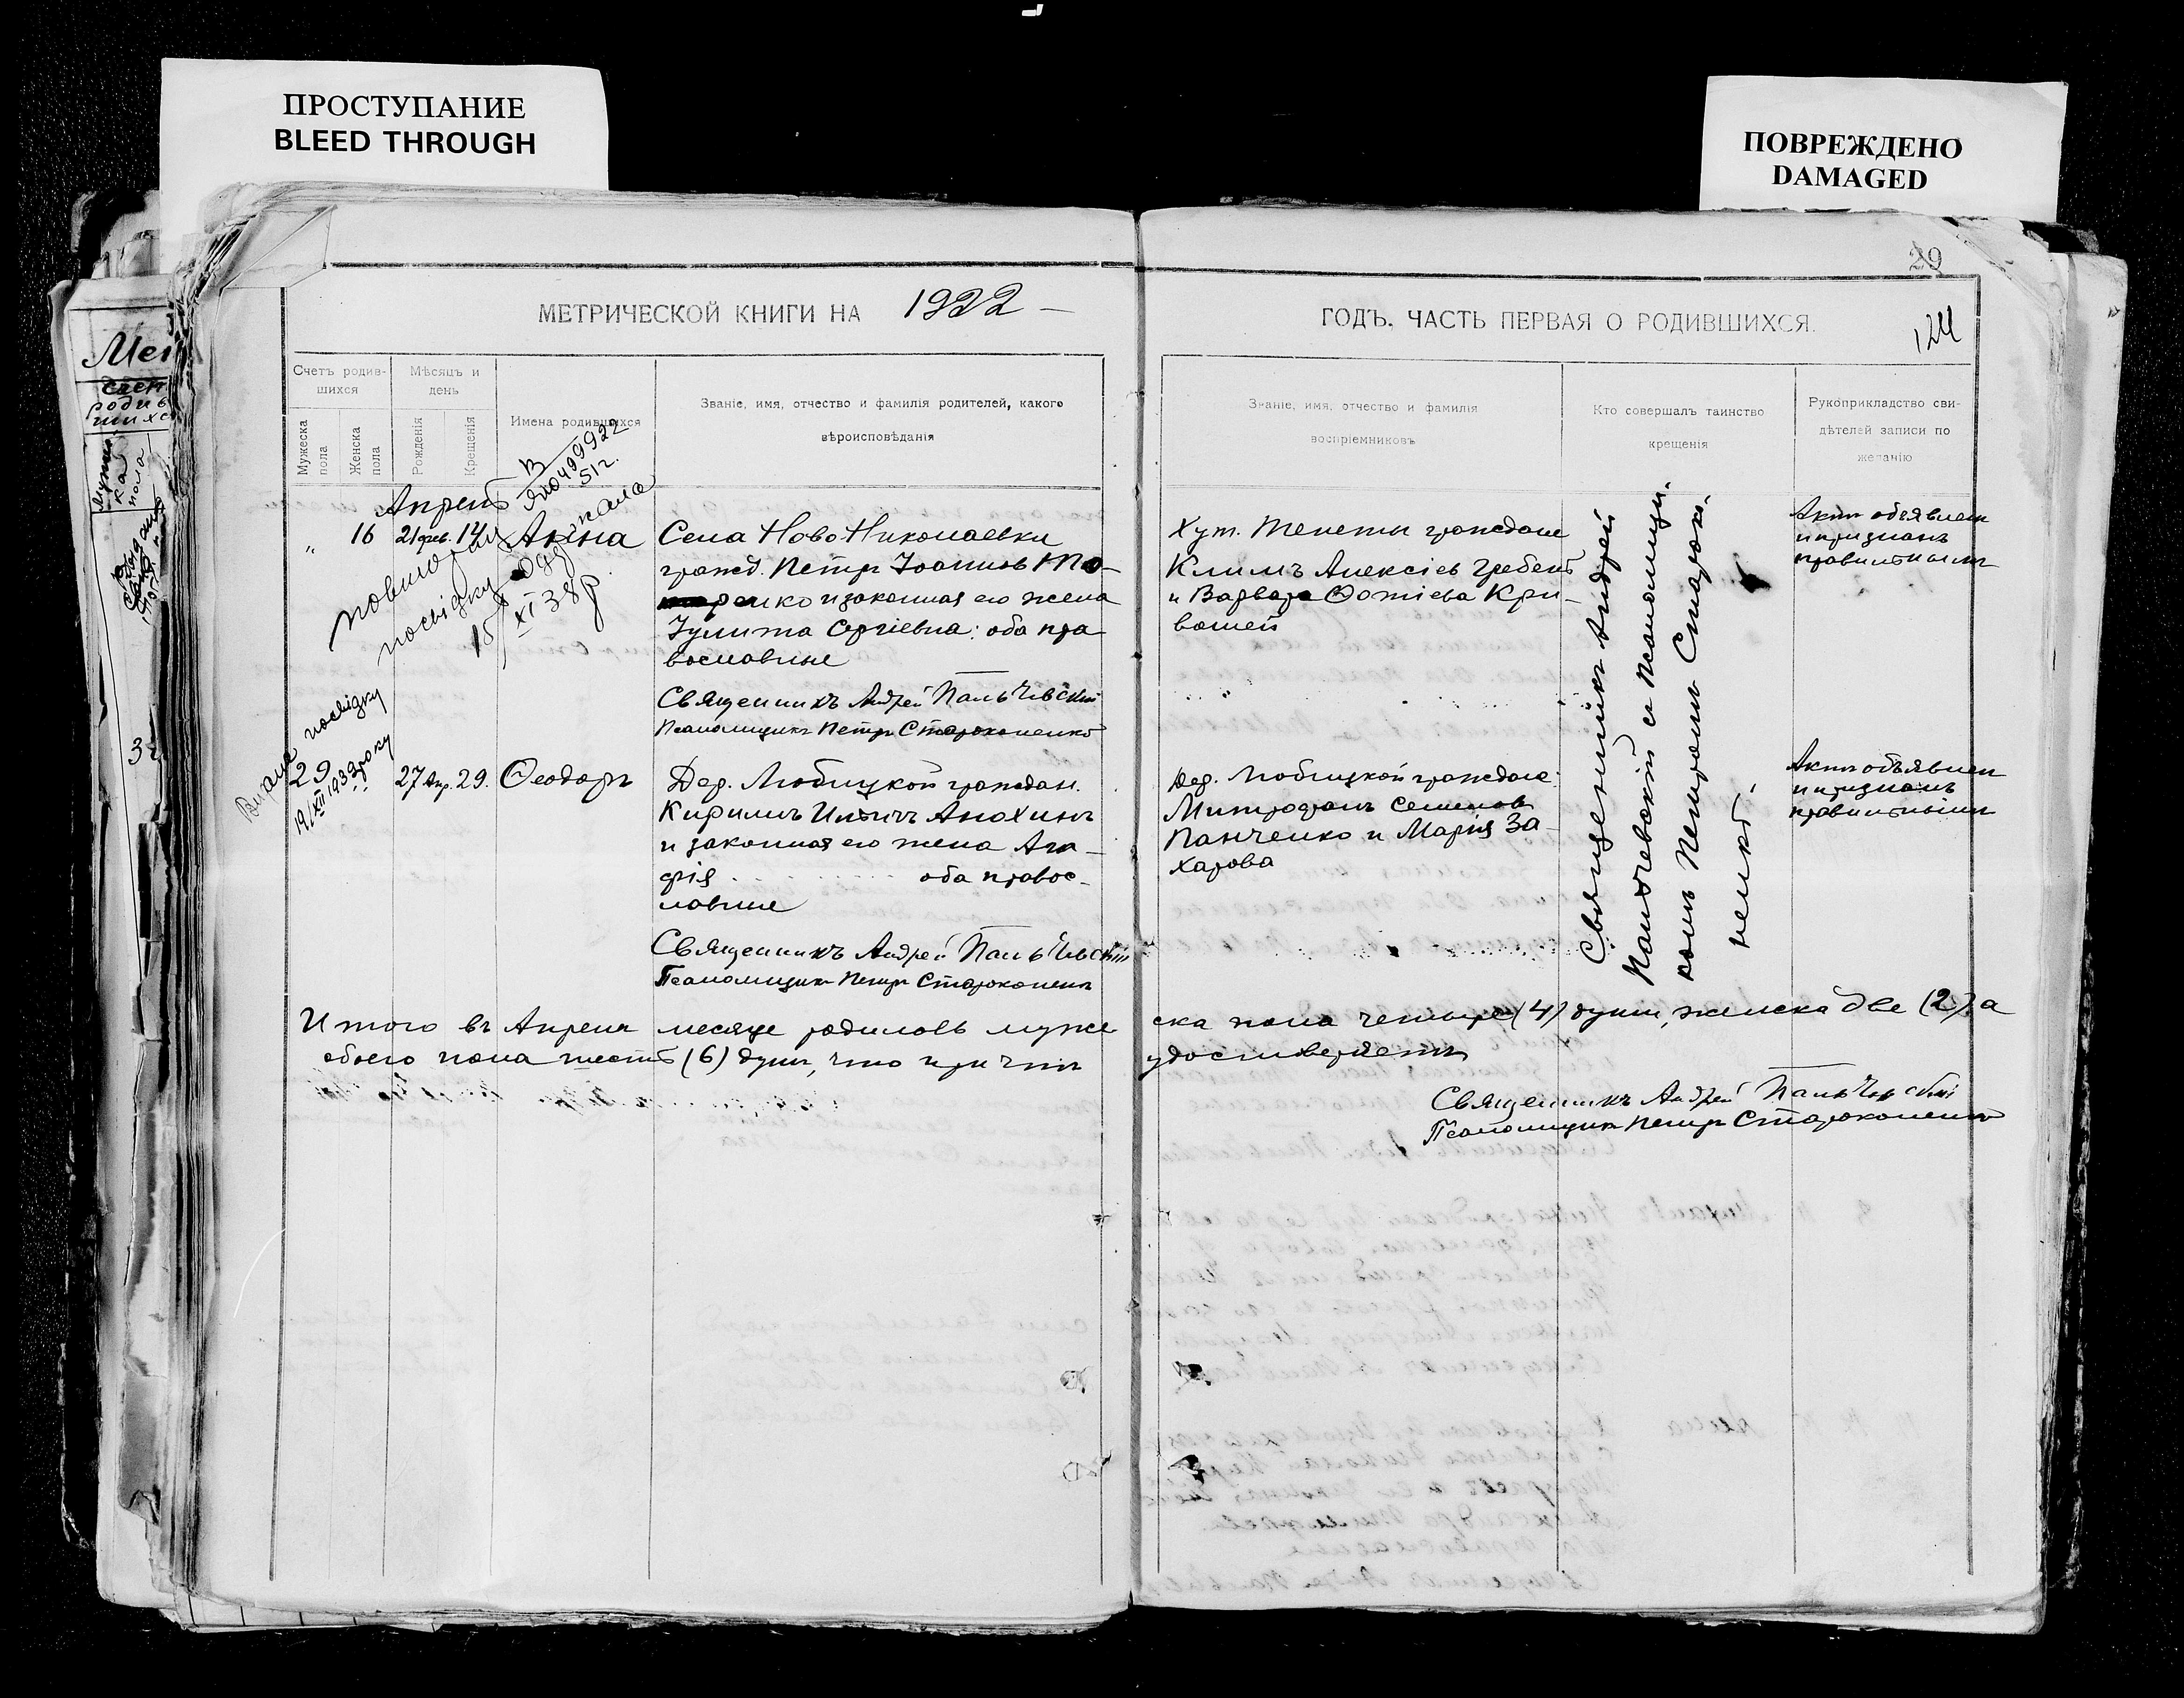 ПРОСТУПАНИЕ
BLEED THROUGH
ПОВРЕЖДЕНО
DAMAGED
29
МЕТРИЧЕСКОЙ КНИГИ НА 1922
ГОДЪ, ЧАСТЬ ПЕРВАЯ О РОДИВШИХСЯ.
124
Счетъ родив-
шихся
Мужеска
пола
Женска
пола
Мѣсяцъ и
день
Рожденія
Крещенія
Имена родившихся
Званіе, имя, отчество и фамилія родителей, какого
вѣроисповѣданія
Званіе, имя, отчество и фамилія
воспріемниковъ
Кто совершалъ таинство
крещенія
Рукоприкладство сви-
дѣтелей записи по
желанію
51 г.
Апрель
" 16 21 фев. 14 Анна
посвідку
15/XI 38 р.
Села Ново Николаевки
гражд. Петръ Іоаннов
и законная его жена
Іулита Сергіевна: оба пра
вославные
Священникъ Андрей Пальчевскій
Псаломщикъ Петръ Староконенко
Хут. Тенеты граждане
Климъ Алексіев Гребень
и Варвара Фотіева Кри-
вошей
Актъ объявлен
и признанъ
правильнымъ
посвідку
19/XII 1933 року
29 27 Апр. 29. Феодоръ
Дер. Любицкой граждан.
Кирилъ Ильичъ Анохинъ
и законная его жена Ага-
фія оба правос-
лавные
Священникъ Андрей Пальчевскій
Псаломщикъ Петръ Староконенко
Дер. Любицкой граждане:
Митрофанъ Семенов
Панченко и Марія За-
харова
Актъ объявлен
и признанъ
правильнымъ
Священникъ Андрей
Пальчевскій с псаломщи-
комъ Петромъ Староко-
ненко.
Итого въ Апреле месяце родилось муже
ска пола четыре (4) души, женска две (2) а
обоего пола шесть (6) душ, что причтъ
удостоверяетъ
Священникъ Андрей Пальчевскій
Псаломщикъ Петръ Староконенко